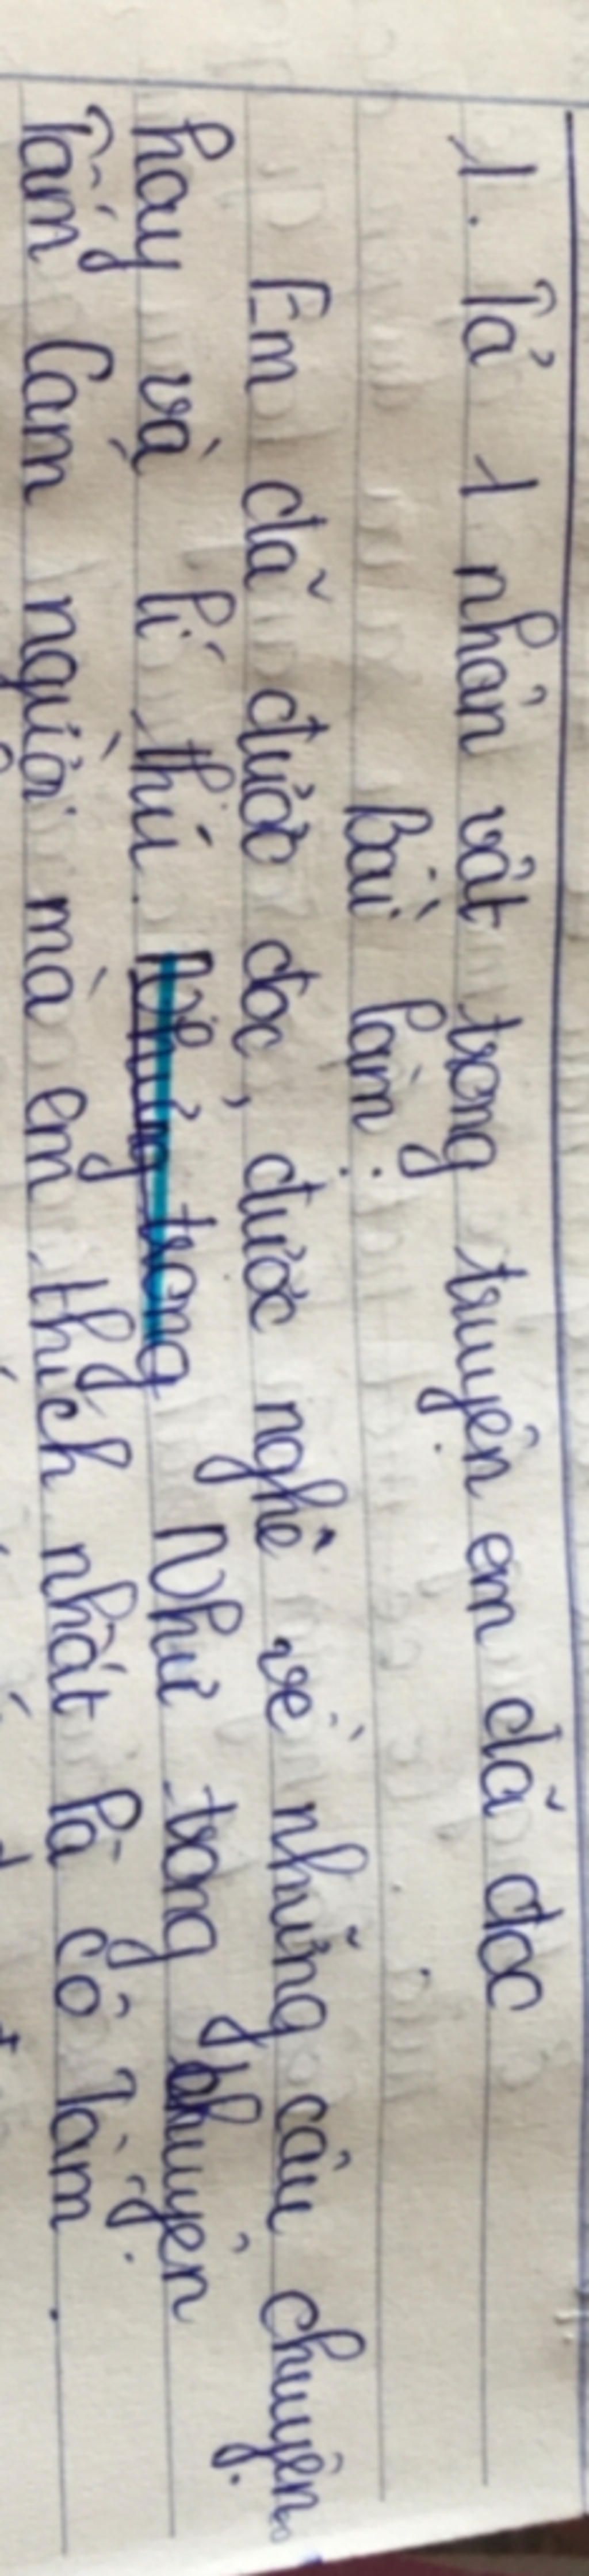 1. Tả 1 nhân vật trong truyện em đã đọc
Bài làm:
Em đã được đọc, được nghê về những câu chuyện
hay và lí thú. Những trong Như trong chuyện
Tấm Cam người mà em thích nhất là cô Tấm.